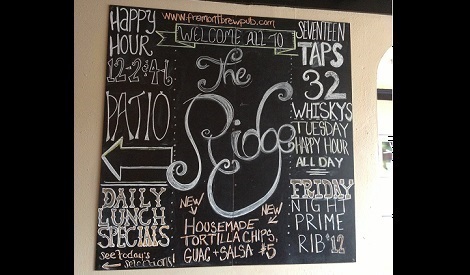 HAPPY
HOUR
12-2 & 4-
PATIO
DAILY
LUNCH
SPECIALS
see today's
selections!
www.fremontbrewpub.com
WELCOME ALL TO
The
Ridge
NEW
NEW
HOUSEMADE
TORTILLA CHIPS,
GUAC + SALSA $5
SEVENTEEN
TAPS
32
WHISKYS
TUESDAY
HAPPY HOUR
ALL DAY
FRIDAY
NIGHT
PRIME
RIB $12